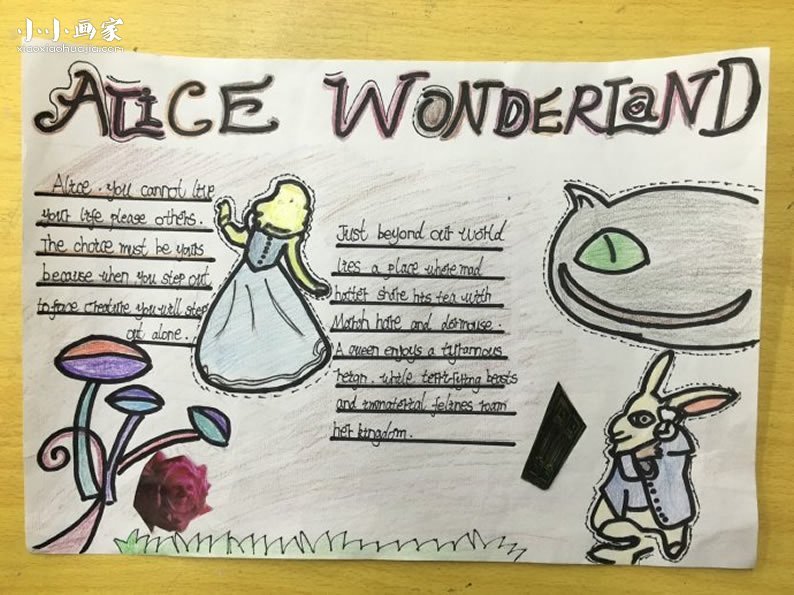 小小画家
xiaoxiaohuajia.com
ALICE WONDERLAND
Alice. you cannot live
your life please others.
The choice must be yours
because when you step out
to face creature you will step
out alone.
Just beyond our world
lies a place where mad
hatter share his tea with
March hare and dormouse.
A queen enjoys a tyrannous
reign. while terrifying beasts
and immaterial felines roam
her kingdom.